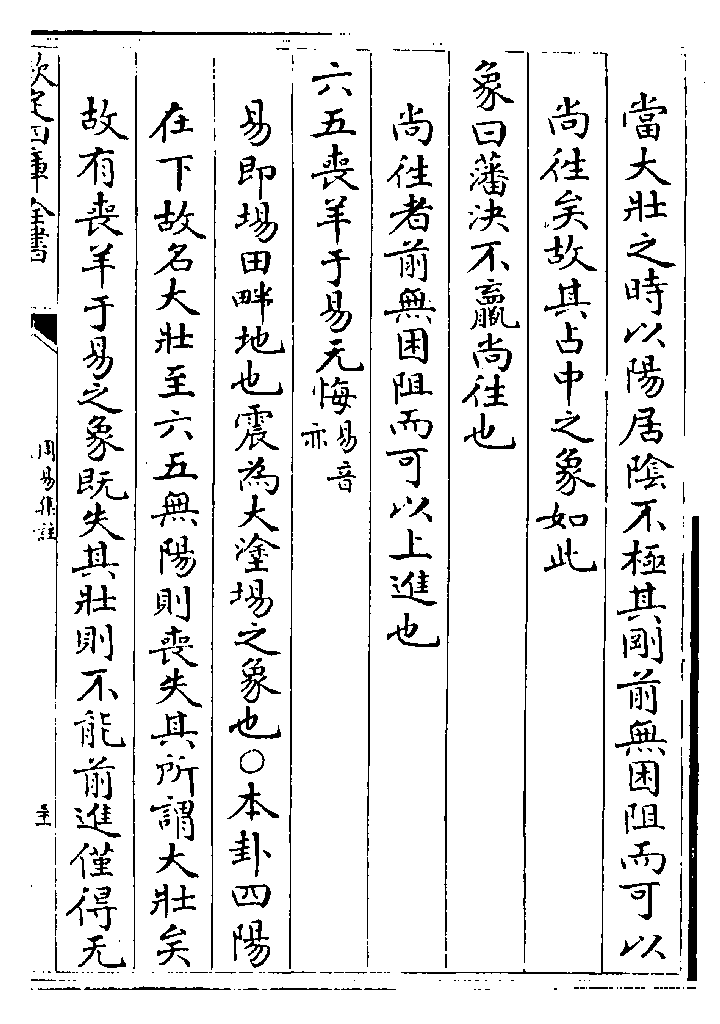 當大壯之時以陽居陰不極其剛前無困阻而可以
尚往矣故其占中之象如此
象曰藩決不羸尚往也
尚往者前無困阻而可以上進也
六五喪羊于易无悔易音亦
易即埸田畔地也震為大塗埸之象也○本卦四陽
在下故名大壯至六五無陽則喪失其所謂大壯矣
故有喪羊于易之象既失其壯則不能前進僅得无
欽定四庫全書
周易集註